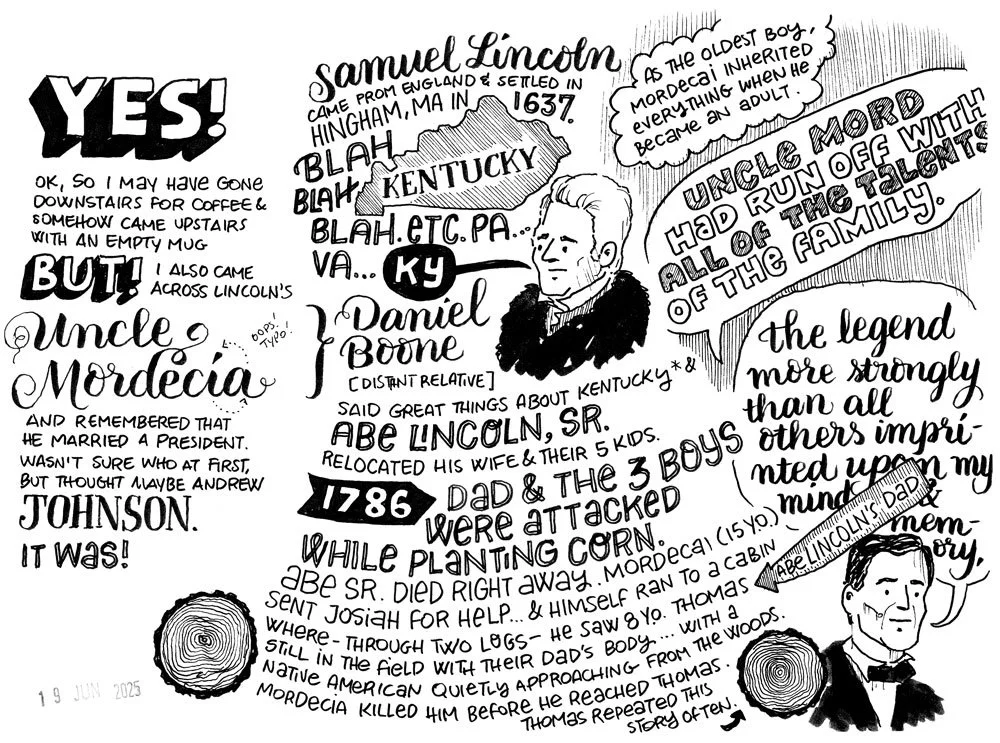 YES!
OK, SO I MAY HAVE GONE
DOWNSTAIRS FOR COFFEE &
SOMEHOW CAME UPSTAIRS
WITH AN EMPTY MUG
BUT! I ALSO CAME
ACROSS LINCOLN'S
Uncle
Mordecia
OOPS!
TYPO!
AND REMEMBERED THAT
HE MARRIED A PRESIDENT.
WASN'T SURE WHO AT FIRST,
BUT THOUGHT MAYBE ANDREW
JOHNSON.
IT WAS!
19 JUN 2025
Samuel Lincoln
CAME FROM ENGLAND & SETTLED IN
HINGHAM, MA IN 1637.
BLAH
BLAH
KENTUCKY
BLAH. ETC. PA...
VA... KY
Daniel
Boone
[DISTANT RELATIVE]
SAID GREAT THINGS ABOUT KENTUCKY* &
ABE LINCOLN, SR.
RELOCATED HIS WIFE & THEIR 5 KIDS.
1786 DAD & THE 3 BOYS
WERE ATTACKED
WHILE PLANTING CORN.
ABE SR. DIED RIGHT AWAY. MORDECAI (15 YO.)
SENT JOSIAH FOR HELP... & HIMSELF RAN TO A CABIN
WHERE - THROUGH TWO LOGS - HE SAW 8 YO. THOMAS
STILL IN THE FIELD WITH THEIR DAD'S BODY... WITH A
NATIVE AMERICAN QUIETLY APPROACHING FROM THE WOODS.
MORDECIA KILLED HIM BEFORE HE REACHED THOMAS.
THOMAS REPEATED THIS
STORY OFTEN.
AS THE OLDEST BOY,
MORDECAI INHERITED
EVERYTHING WHEN HE
BECAME AN ADULT.
UNCLE MORD
HAD RUN OFF WITH
ALL OF THE TALENTS
OF THE FAMILY.
the legend
more strongly
than all
others impri-
nted upon my
mind &
mem-
ory.
ABE LINCOLN'S DAD